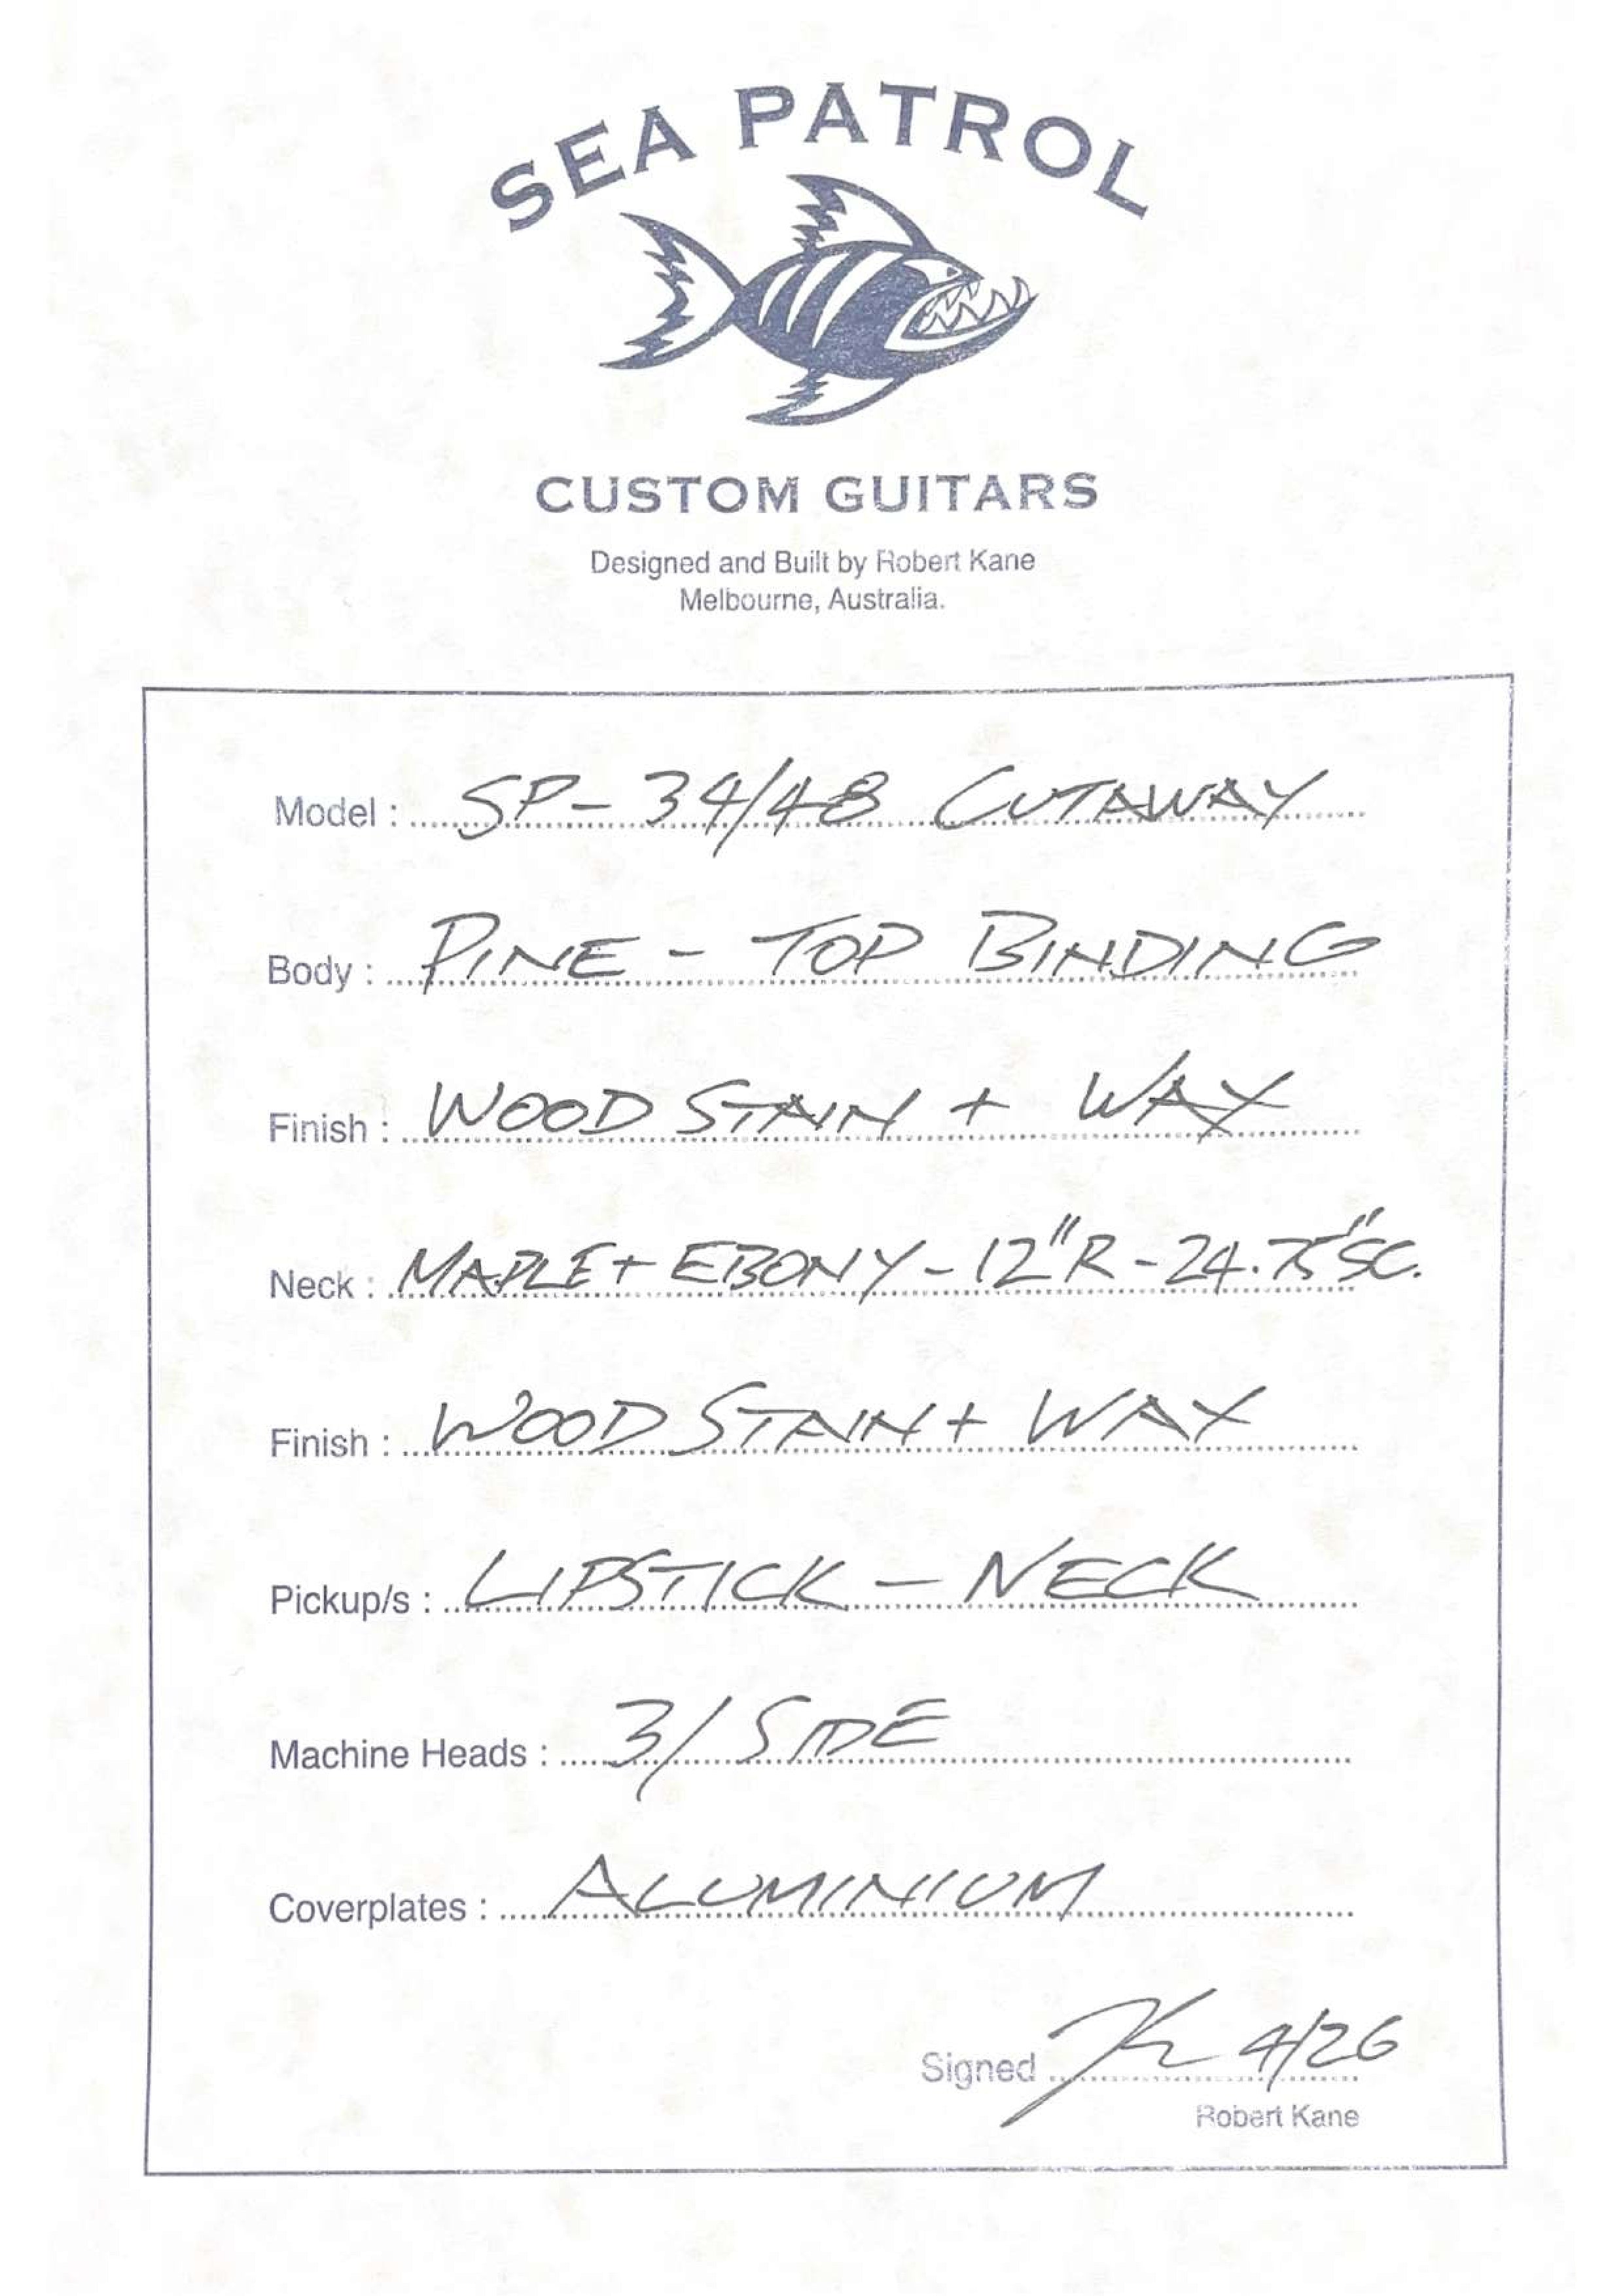 SEA PATROL
CUSTOM GUITARS
Designed and Built by Robert Kane
Melbourne, Australia.
Model : SP - 34/48 CUTAWAY
Body : PINE - TOP BINDING
Finish : WOOD STAIN + WAX
Neck : MAPLE + EBONY - 12"R - 24.75"SC.
Finish : WOOD STAIN + WAX
Pickup/s : LIPSTICK - NECK
Machine Heads : 3/SIDE
Coverplates : ALUMINIUM
Signed 4/26
Robert Kane